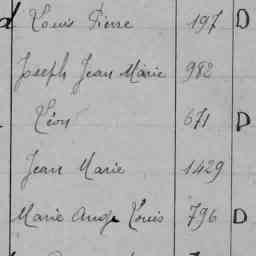 d Louis Pierre 197 D
Joseph Jean Marie 982
Léon 671 D
Jean Marie 1429
Marie Ange Louis 796 D